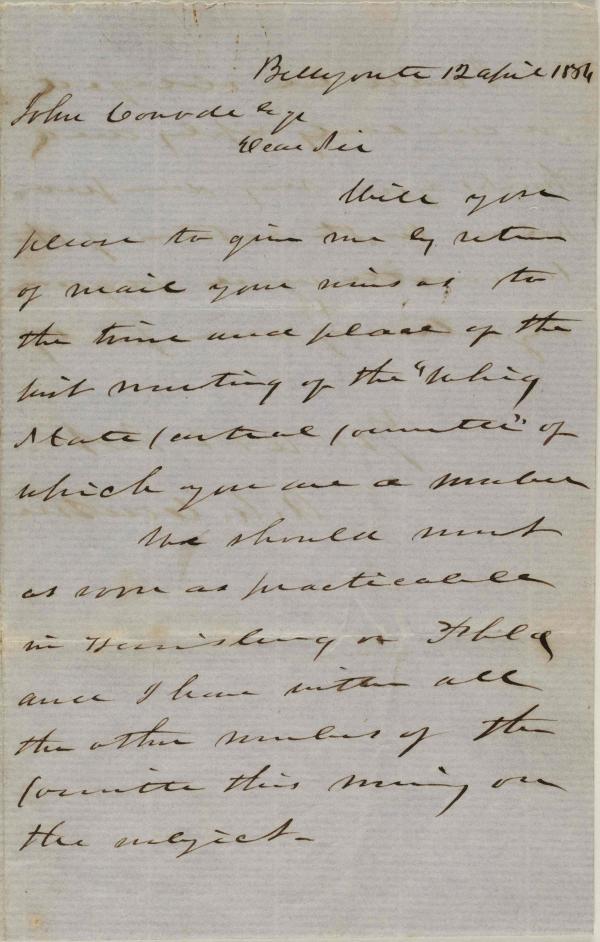 Bellefonte 12 april 1854
John Covode Esqr
Dear Sir
Will you
please to give me by return
of mail your views as to
the time and place of the
first meeting of the "Whig
State Central Committee" of
which you are a member
We should meet
as soon as practicable
in Harrisburg or Philda
and I have written all
the other members of the
Committee this morning on
the subject-